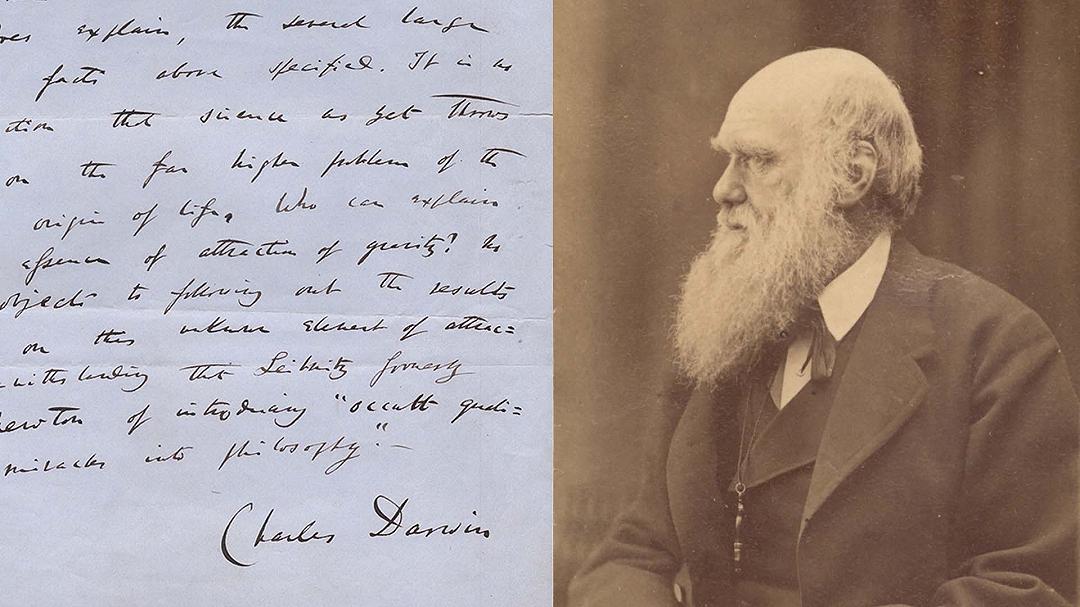 explain, the several large
facts above specified. It is no
tion that science as yet throws
on the far higher problem of the
origin of life. Who can explain
essence of attraction of gravity? No
objects to following out the results
on this unknown element of attrac=
withstanding that Leibnitz formerly
ewton of introducing "occult quali=
miracles into philosophy."—
Charles Darwin